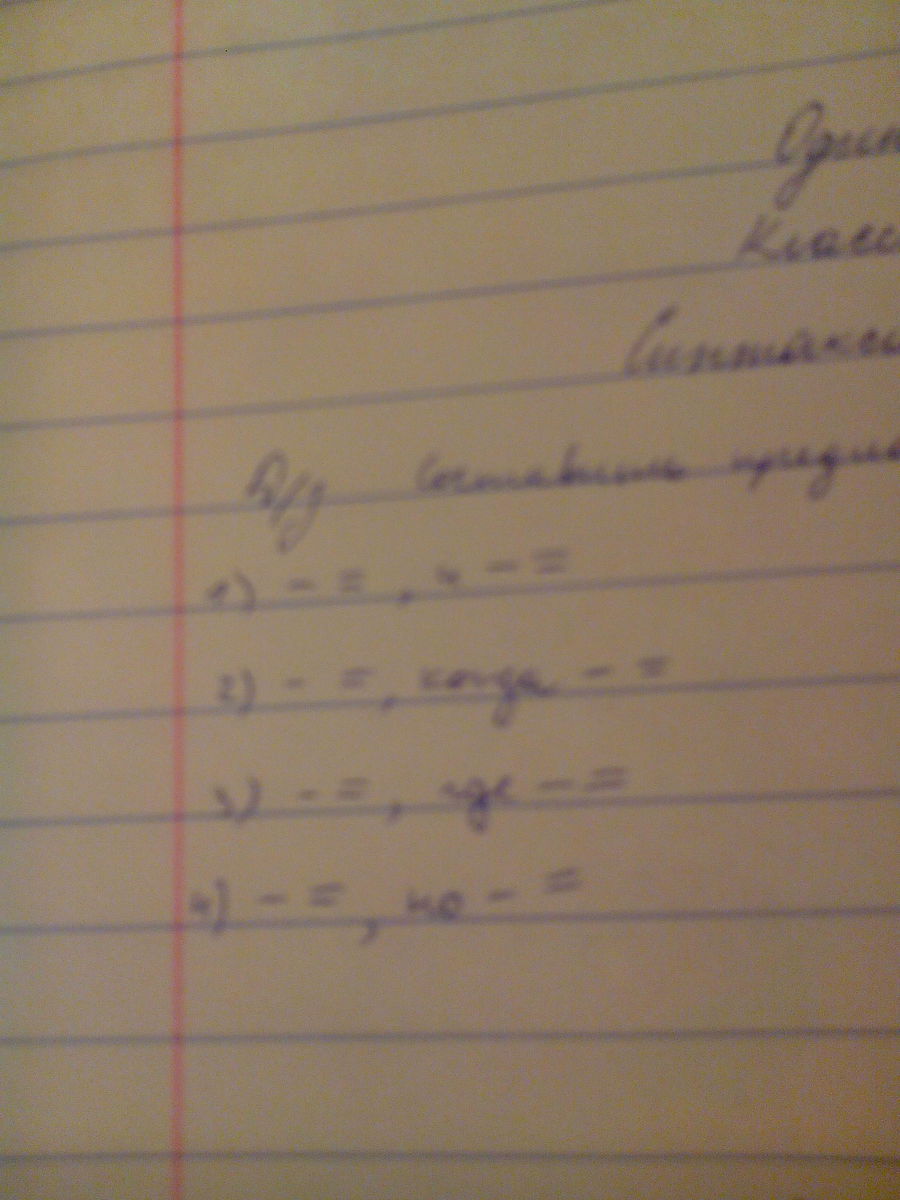 Один
Класс
Синтакси
Д/з Составить предло
1) – = , и – =
2) – = , когда – =
3) – = , где – =
4) – = , но – =